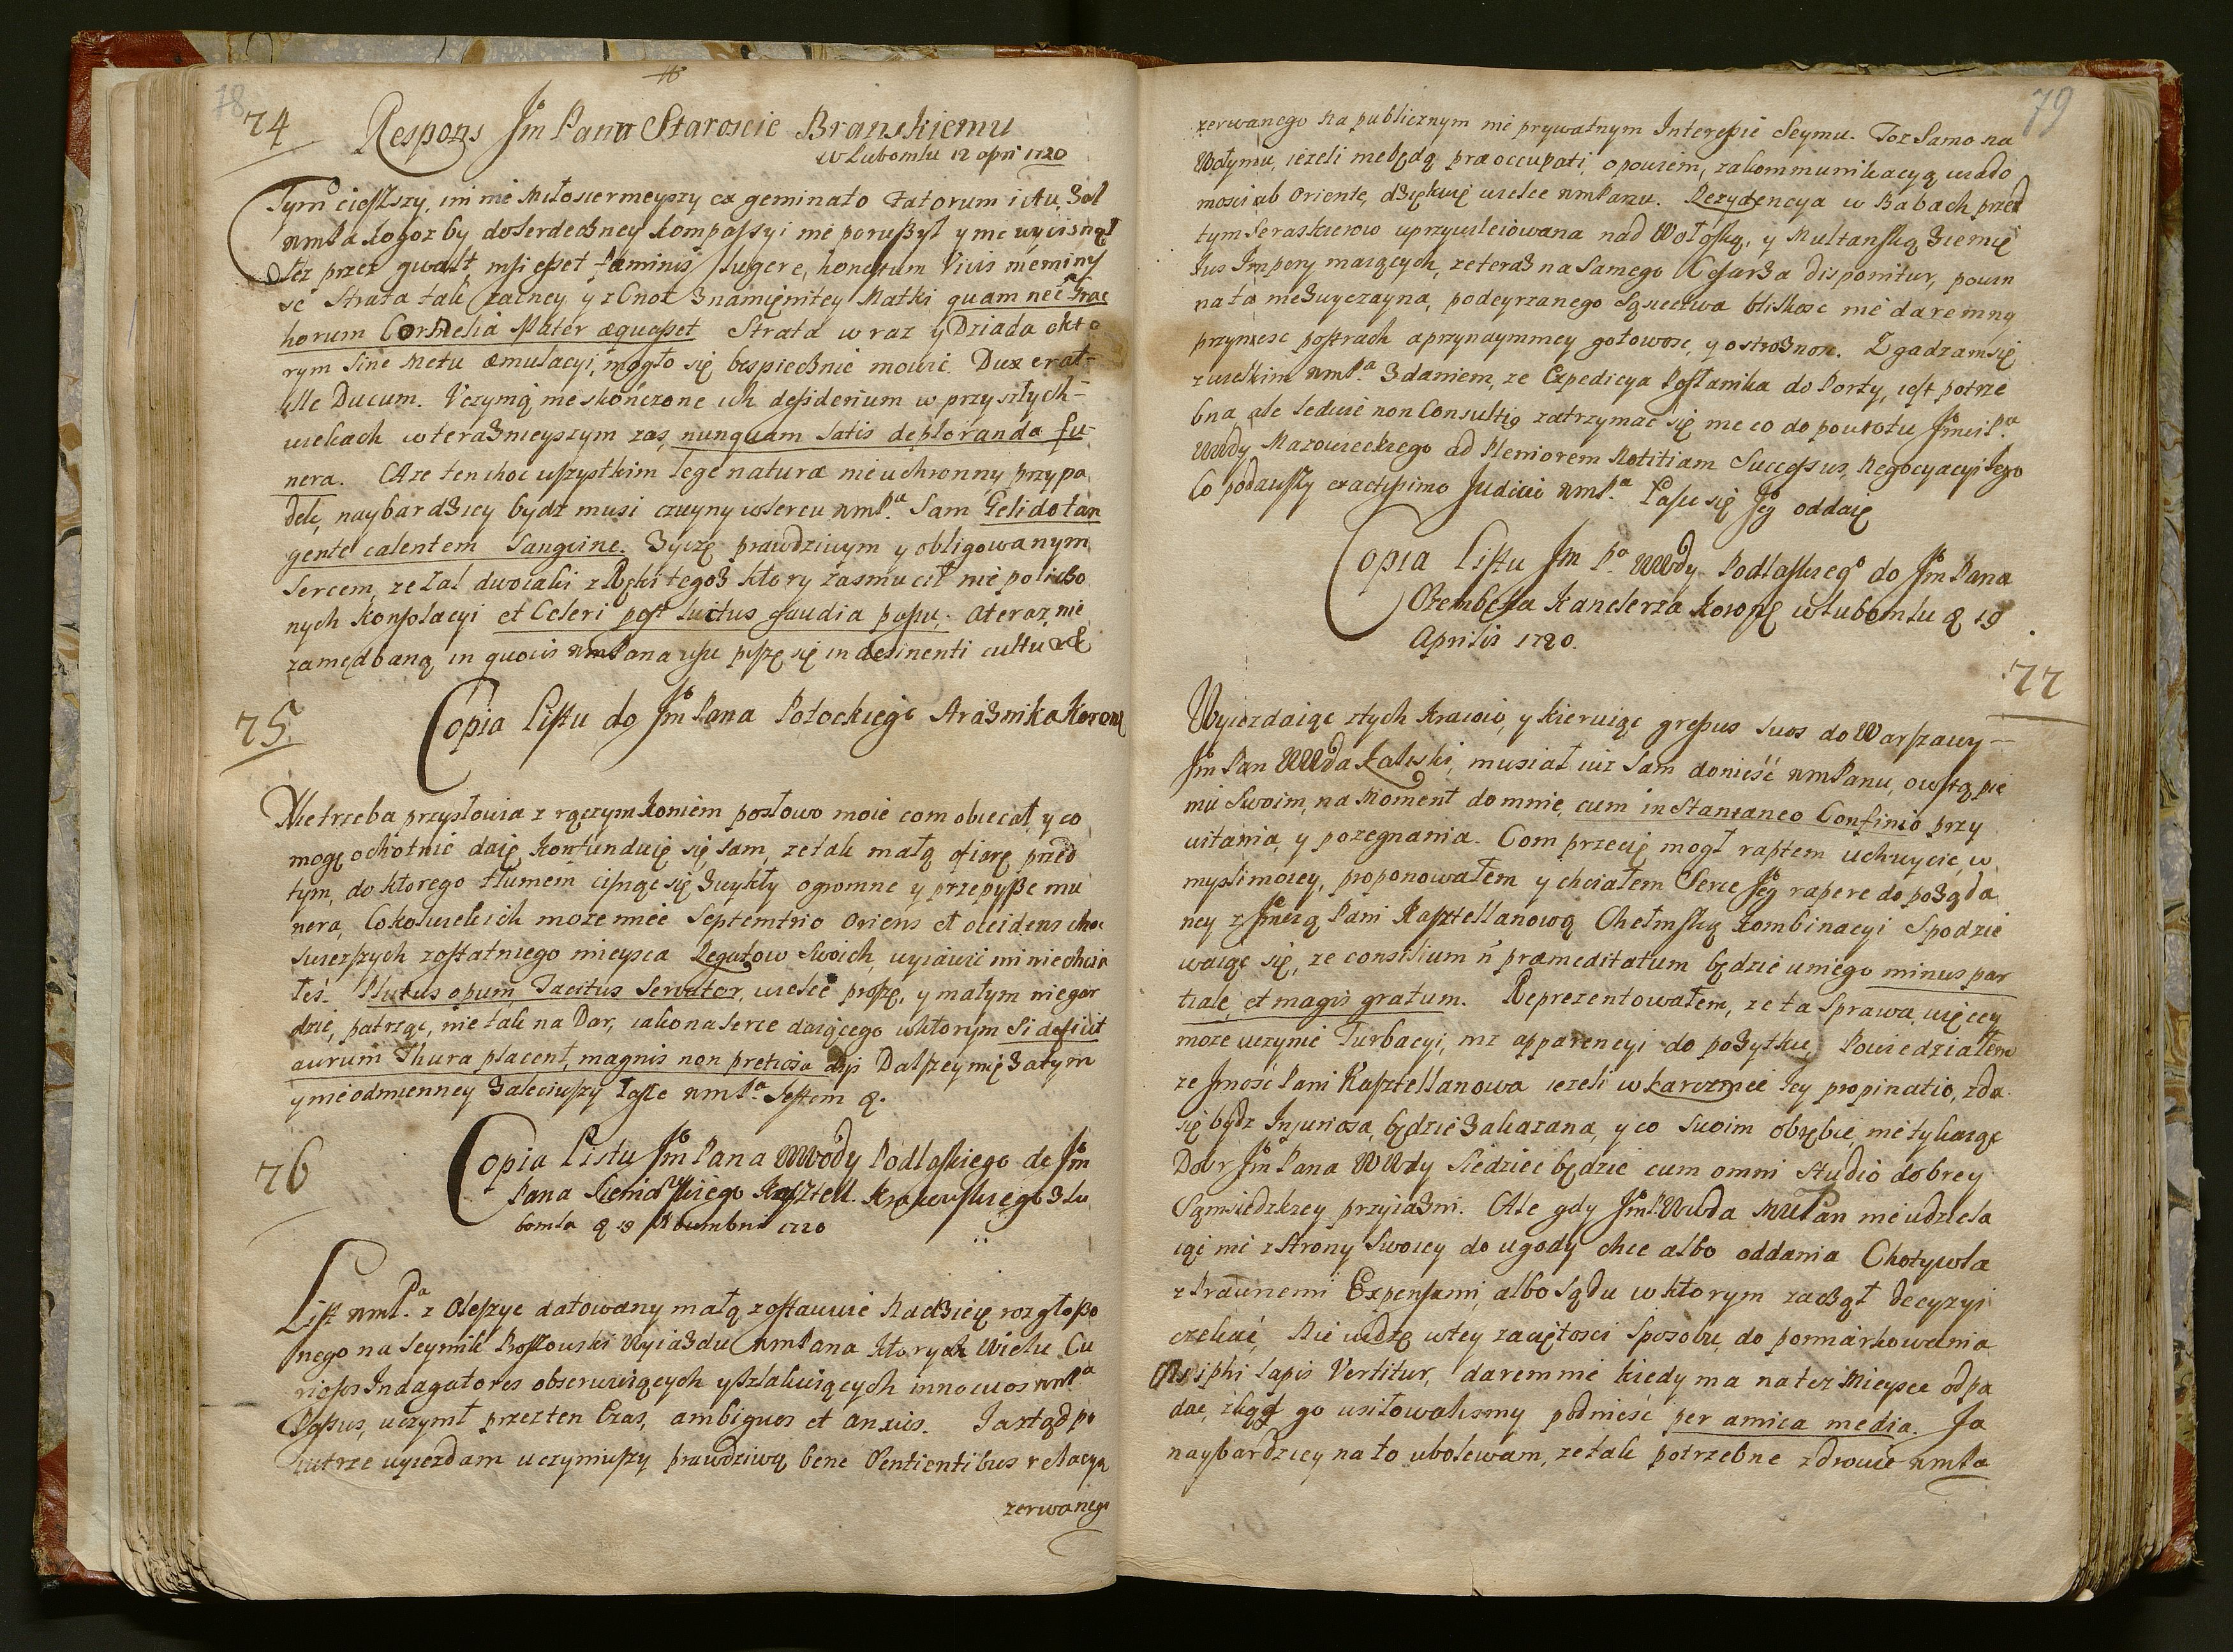 78
74
Respons Jm Panu Staroscie Branskiemu
w Lubomlu 12 apri 1720
Tym cięszszy, im nie Miłosiernieyszy ex geminato Fatorum ictu, Zal
WmPa kogoz by do serdeczney kompassyi nie poruszył y nie wycisnął
łez przez gwałt, nisi esset fæminis lugere, honestum Viris meminis
se Strata tak zacney y z Cnot Znamięnitey Matki quam nec Grac
horum Cornelia Mater æquasset Strata w raz y Dziada o kto
rym Sine Metu æmulacyi, mogło się bespiecznie mowić. Dux erat
ille Ducum. Uczynią nieskończone ich desiderium w przyszłych
wiekach w teraznieyszym zas, nunquam satis deploranda fu
nera. A ze ten choc wszystkim lege naturæ nieuchronny przypa
dek, naybardziey bydz musi czuyny w sercu WmPa. Sam Gelido tan
gente calentem Sanguine. Zyczę prawdziwym y obligowanym
Sercem, ze zal dwoiaki z Ręki tegoz ktory zasmucił nie policzo
nych konsolacyi et Celeri post luctus gaudia passu, a teraz nie
zamędbaną in quovis WmPana usu piszę się indesinenti cultu &
75
Copia Listu do Jm Pana Potockiego Straznika Koron
Nie trzeba przysłowia z rączym koniem po słowo moie com obiecał, y co
mogę ochotnie daię konfunduię się sam, ze tak małą ofiarę przed
tym, do ktorego tłumem cisnąc się zwykły ogromne y przepyszne mu
nera, Cokolwiek ich moze miec Septemtrio Oriens et occidens choc
swiezszych z ostatniego mieysca Legatow Swoich, wyiawić mi nie chcia
łeś. Plutus opum Tacitus Servator, wielce proszę, y małym niegar
dzić, patrząc, nie tak na Dar, iako na serce daiącego w ktorym Si deficit
aurum Thura placent, magnis non pretiosa diis Dalszey mię zatym
y nieodmienney zaleciwszy łasce WmPa. Jestem &.
76
Copia Listu Jm Pana Wwody Podlaskiego do Jm
Pana Sieniawskiego Kasztell. Krakowskiego z Lu
bomla & 19 1720
List WmPa. z Oleszyc datowany małą zostawuie Nadzieię rozgłoszo
nego na Seymik Wyiazdu WmPana ktorych Wielu Cu
riosos Indagatores obserwuiących y szlakuiących innocuos WmPa
Passus, uczynił przez ten Czas, ambiguos et anxios. Ja ztąd po
iutrze wyiezdzam uczyniwszy prawdziwą bene Sentientibus relacyą
zerwanego
79
zerwanego na publicznym nie prywatnym Interesie Seymu. Toz Samo na
Wołyniu, iezeli niebędą præoccupati, opowiem, za kommunikacyą wiado
mosci ab Oriente, dziękuię wielce WmPanu. Rezydencya w Babach przed
tym Seraskierow uprzywileiowana nad Wołoską, y Multanską Ziemię
Jus Imperij maiących, ze teraz na Samego Cesarza disponitur, powin
na ta niezwyczayna, podeyrzanego Sąsiectwa bliskosc nie daremny
przyniesc postrach a przynaymniey gotowosc, y ostroznosc. Zgadzam się
z wielkim WmPa. Zdaniem, ze Expedicya Posłanika do Porty, iest potrze
bna, ale ledwie non Consultius zatrzymac się nieco do powrotu Jmci Pa.
Wwdy Mazowieckiego ad Pleniorem Notitiam Successus, Negocyacyi Jego
Co podawszy exactissimo Judicio WmPa. Łasce się Jego oddaię
Copia Listu Jm Pa Wwdy Podlaskiego do Jm Pana
Szembeka Kanclerza Koronę w Lubomlu & 19
Aprilis 1720.
77
Wyiezdzaiąc z tych kraiow, y kieruiąc gressus suos do Warszawy
Jm Pan WWda, musiał iuz Sam donieść WmPanu, o wstąpie
niu Swoim, na Moment do mnie, cum instantaneo Confinio przy
witania, y pozegnania. Com przecię mogł raptem uchwycic, w
myslimoiey, proponowałem y chciałem Serce Jego rapere do poząda
ney z Jmcią Panią Kasztellanową Chełmską kombinacyi Spodzie
waiąc się, ze consilium ñ præmeditatum będzie uniego minus par
tiale, et magis gratum. Reprezentowałem, ze ta Sprawa, więcey
moze uczynic Turbacyi, niz apparencyi do pozytku, Powiedziałem
ze Jmość Pani Kasztellanowa iezeli w karczmie Jey propinatio, zda
się bydz Injuriosa, będzie zakazana, y co Swoim obrębie, nie tykaiąc
Dobr Jm Pana WWdy Siedziec będzie cum omni Studio dobrey
Sąmsiedzkiey przyiazni. Ale gdy Jm P. Wwda Nie Pan nieudziela
iąc nic z Strony Swoiey do ugody chce albo oddania Chotywla
z Prawnemi Expensami, albo Sądu w ktorym zaczął decyzyi
czekać, Nie widzę w tey zaciętosci Sposobu, do pomiarkowania
Sisiphi lapis Vertitur, daremnie kiedy ma na tez Mieysce odpa
dac, zkąd go usiłowalismy podniesć per amica media. Ja
naybardziey na to ubolewam, ze tak potrzebne zdrowie WmPa